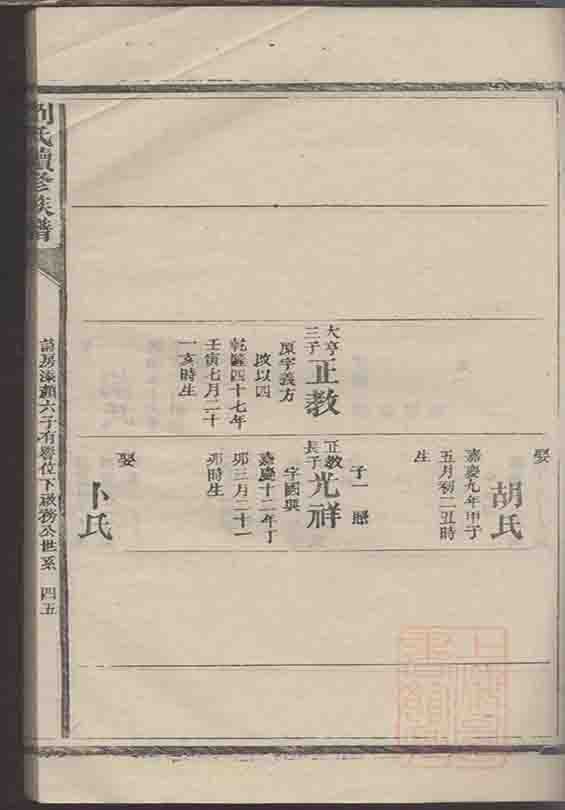 大亨
三子
正教
原字義方
改以四
乾隆四十七年
壬寅七月二十
一亥時生
娶
胡氏
嘉慶九年甲子
五月初二丑時
生
子一
正教
長子
光祥
字國興
嘉慶十二年丁
卯三月二十一
卯時生
娶
卜氏
劉氏續修族譜
房 六子有譽位下 務公世系 四五